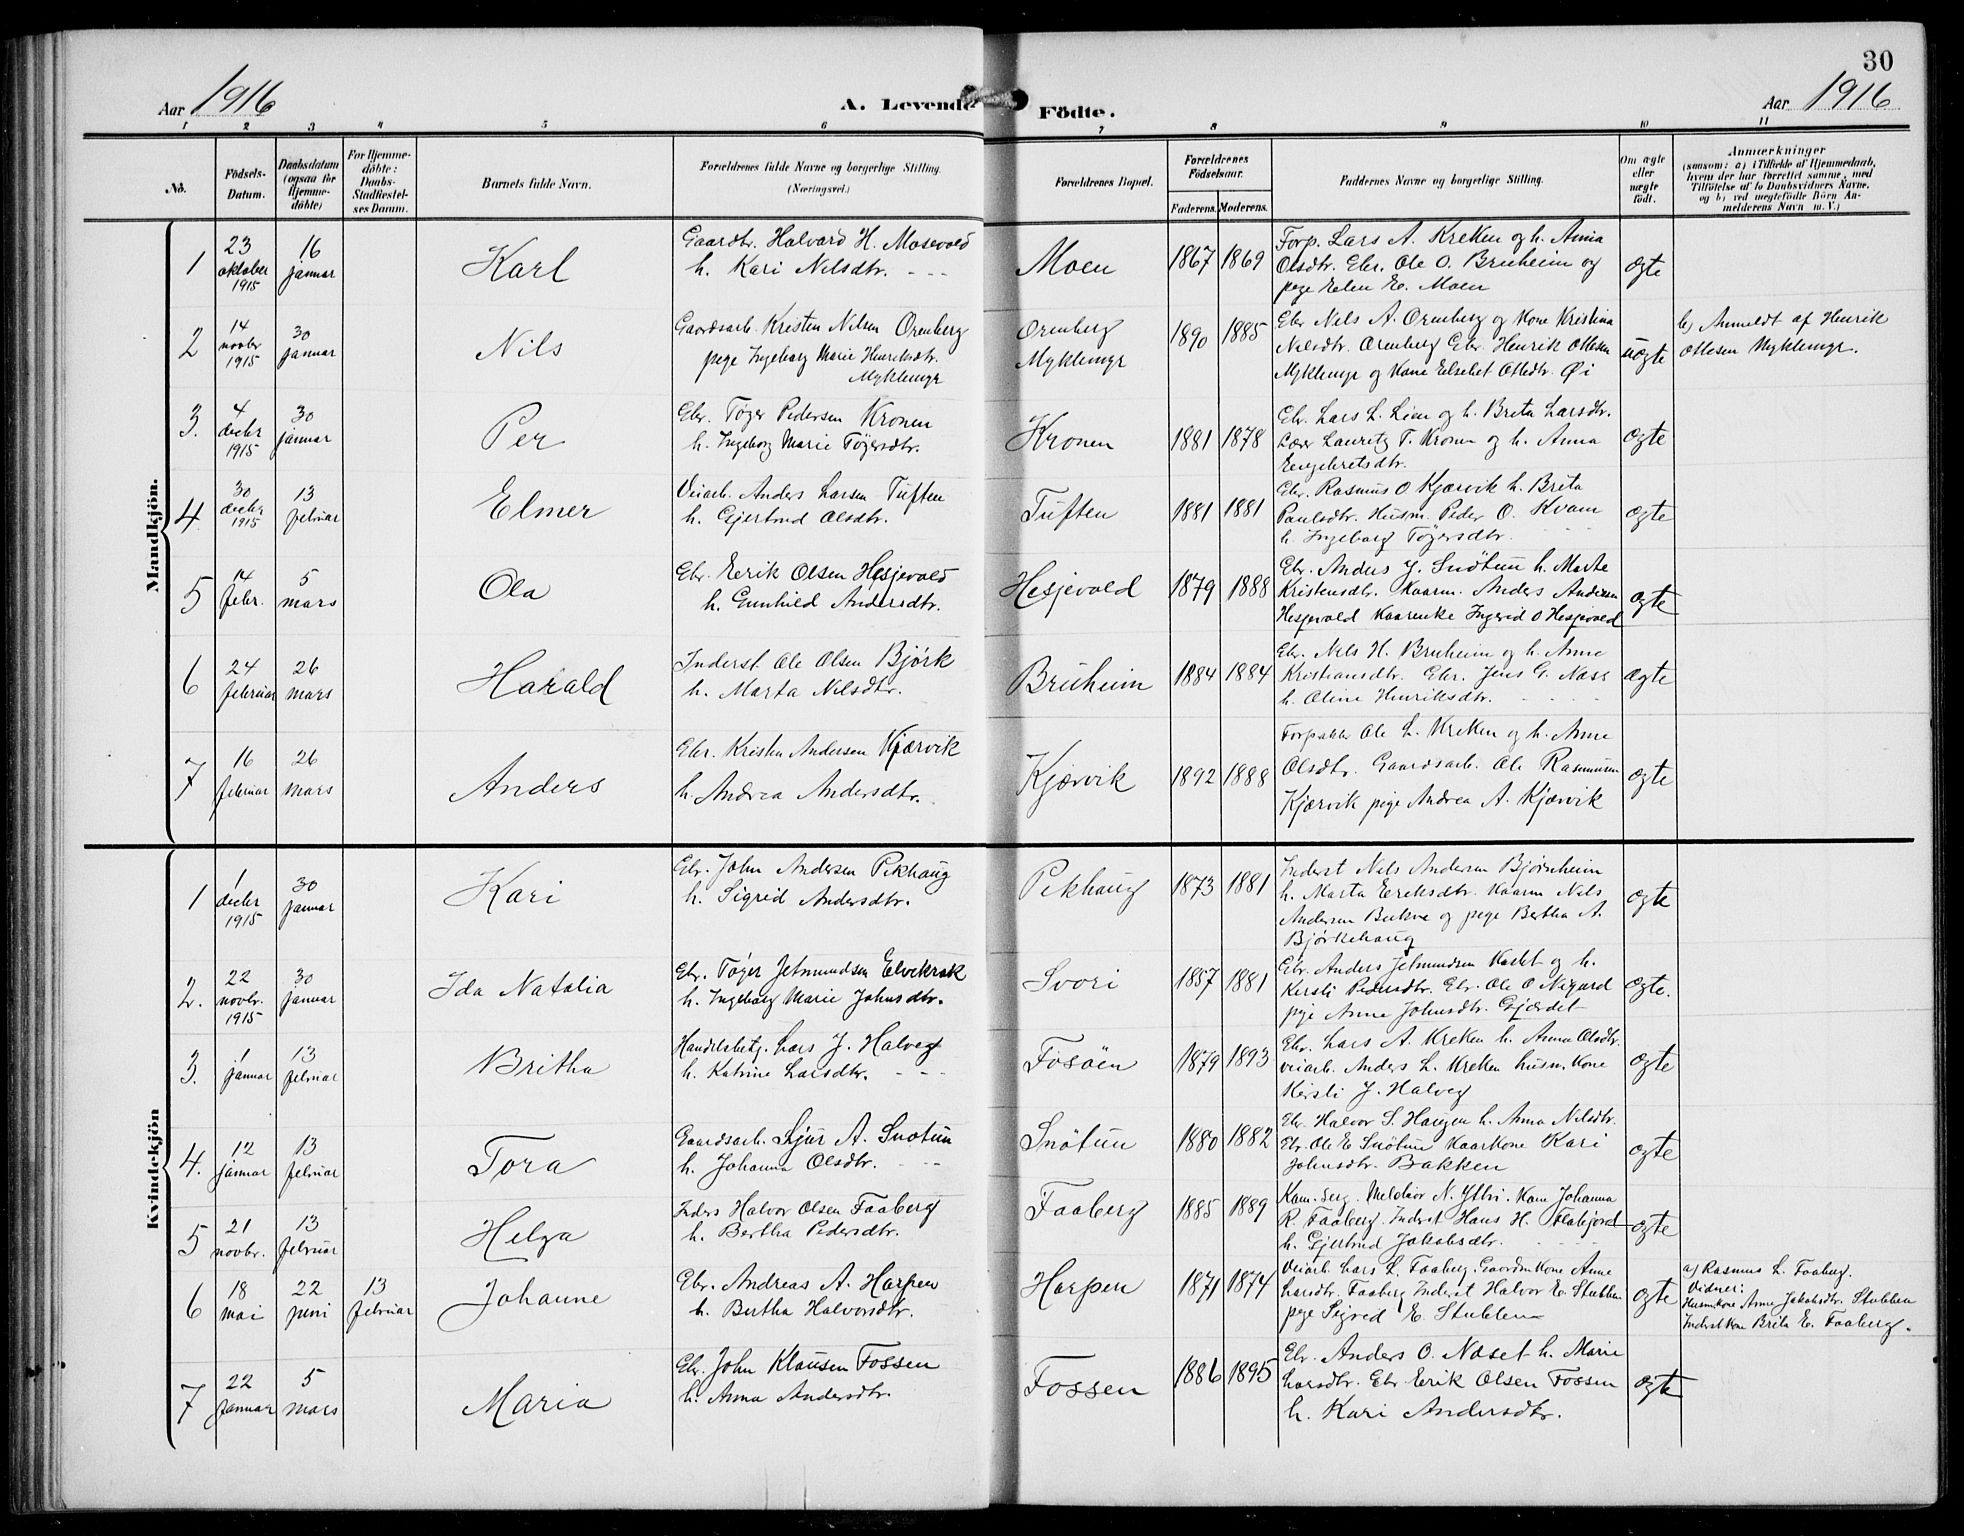 30
Aar 1916
A. Levende Födte.
Aar 1916
1 2 3 4 5 6 7 8 9 10 11
No.
Födsels-Datum.
Daabsdatum (ogsaa för Hjemme-döbte)
For Hjemme-döbte: Daabs-Stadfæstel-ses Datum.
Barnets fulde Navn.
Forældrenes fulde Navne og borgerlige Stilling.
(Næringsvei.)
Forældrenes Bopæl.
Forældrenes Födselsaar.
Faderens. Moderens.
Faddernes Navne og borgerlige Stilling.
Om ægte eller uægte födt.
Anmærkninger
(saasom: a) i Tilfælde af Hjemmedaab,
hvem der har forrettet samme, med
Tilföielse af to Daabsvidners Navne.
og b) ved uægtefödte Börn An-
melderens Navn m. V.)
Mandkjön.
1 23 oktober 1915 16 januar Karl
Gaardbr. Halvard H. Mosevold
h. Kari Nilsdtr. - - -
Moen 1867 1869
Forp. Lars A. Kreken og h. Anna
Olsdtr. Ebr. Ole O. Bruheim og
pige Elen E. Moen
ægte
2 14 novbr 1915 30 januar Nils
Gaardsarb. Kristen Nilsen Orenberg
pige Ingeborg Marie Henriksdtr.
Myklemyr
Orenberg
Myklemyr
1890 1885
Ebr Nils A. Orenberg og Kone Kristina
Nilsdtr. Orenberg Gbr. Henrik Ottesen
Myklemyr og Kone Elsebet Ottedtr. Øi
uægte
b) Anmeldt af Henrik
Ottesen Myklemyr.
3. 4 decbr 1915 30 januar Per
Gbr. Tøger Pedersen Kronen
h. Ingeborg Marie Tøgersdtr.
Kronen 1881 1878
Gbr. Lars L. Lien og h. Brita Larsdtr.
Lærer Lauritz T. Kronen og h. Anna
Engebretsdtr.
ægte
4 30 decbr 1915 13 februar Elmer
Veiarb. Anders Larsen Tuften
h. Gjertrud Olsdtr.
Tuften 1881 1881
Gbr. Rasmus O Kjærvik h. Brita
Paulsdtr. Husm. Peder O. Kvam
h. Ingeborg Tøgersdtr.
ægte
5 14 febr. 5 mars Ola
Gbr. Eerik Olsen Hesjevold
h. Gunhild Andersdtr.
Hesjevold 1879 1888
Gbr. Anders J. Snötun h. Marte
Kristensdtr. Kaarm. Anders Andersen
Hesjevold Kaarenke Ingerid O Hesjevold
ægte
6 24 februar 26 mars Harald
Inderst. Ole Olsen Bjørk
h. Marta Nilsdtr.
Bruheim 1884 1884
Gbr. Nils H. Bruheim og h. Anne
Kristiansdtr. Gbr. Jens G. Næss
h. Oline Henriksdtr.
ægte
7 16 februar 26 mars Anders
Gbr. Kristen Andersen Kjærvik
h. Andrea Andersdtr.
Kjærvik 1892 1888
Forpakter Ole L. Kreken og h. Anne
Olsdtr. Gaardsarb. Ole Rasmussen
Kjærvik pige Andrea A. Kjærvik
ægte
Kvindekjön
1 1 decbr 1915 30 januar Kari
Gbr. John Andersen Pikhaug
h. Sigrid Andersdtr.
Pikhaug 1873 1881
Inderst Nils Andersen Bjørnheim
h. Marta Eeriksdtr. Kaarm Nils
Andersen Bukve og pige Bertha A.
Bjørkehaug
ægte
2. 22 novbr. 1915 30 januar Ida Natalia
Gbr. Tøger Jetmundsen Elvekrok
h. Ingeborg Marie Johnsdtr.
Svori 1857 1881
Gbr. Anders Jetmundsen Kastet og h.
Kersti Pedersdtr. Gbr. Ole O Nigard
pige Anne Johnsdtr. Gjerdet
ægte.
3. 1 januar 13 februar Britha
Handelsbetj. Lars J. Halveg
h. Katrine Larsdtr. - - -
Fosöen 1879 1893
Gbr. Lars A. Kreken h. Anna Olsdtr.
veiarb. Anders L. Kreken husm. Kone
Kersti J. Halveg
ægte
4. 12 januar 13 februar Tora
Gaardsarb. Sjur A. Snotun
h. Johanna Olsdtr. - - -
Snötun 1880 1882
Gbr. Halvor S. Haugen h. Anna Nilsdtr.
Gbr. Ole E Snötun Kaarkone Kari
Johnsdtr. Bakken
ægte
5 21 novbr. 13 februar Helga
Inders Halvor Olsen Faaberg
h. Bertha Pedersdtr.
Faaberg 1885 1889
Kone Johanna
R. Faaberg. Inderst Hans H. Flahjord
h. Gjertrud Jakobsdtr.
ægte
6 18 mai 22 juni 13 februar Johanne
Gbr. Andreas A. Harpen
h. Bertha Halvorsdtr.
Harpen 1871 1874
Veiarb. Lars L. Faaberg. Gaardm. Kone Anne
Larsdtr. Faaberg Inderst Halvor E. Stubben
pige Sigrid E. Stubben
ægte
a) Rasmus L. Faaberg.
Vidner:
Husm.Kone Anne Jakobsdtr. Stubben
Inderst Kone Brita E. Faaberg.
7 22 januar 5 mars Maria
Gbr. John Klausen Fossen
h. Anna Andersdtr.
Fossen 1886 1895
Gbr. Anders O. Næset h. Marie
Larsdtr. Gbr Eerik Olsen Fossen
h. Kari Andersdtr.
ægte